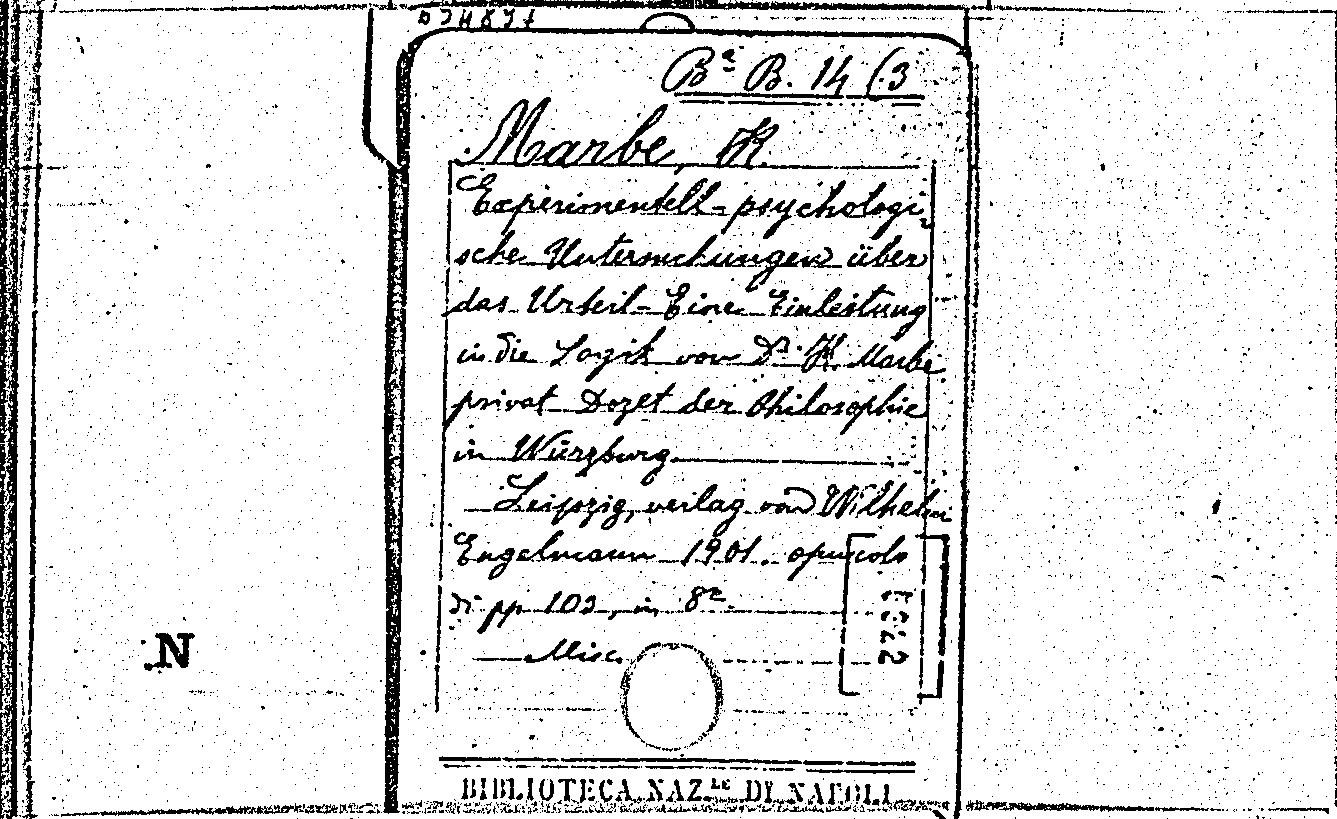 Bª B. 14 (3
Marbe, K.
Experimentell-psychologi-
sche Untersuchungen über
das Urteil-Eine Einleitung
in die Logik von Dr. K. Marbe
privat Dozet der Philosophie
in Würzburg
Leipzig, verlag von Wilhelm
Engelmann 1901. opuscolo
di pp 103, in 8º.
Misc.
N
BIBLIOTECA NAZ.LE DI NAPOLI